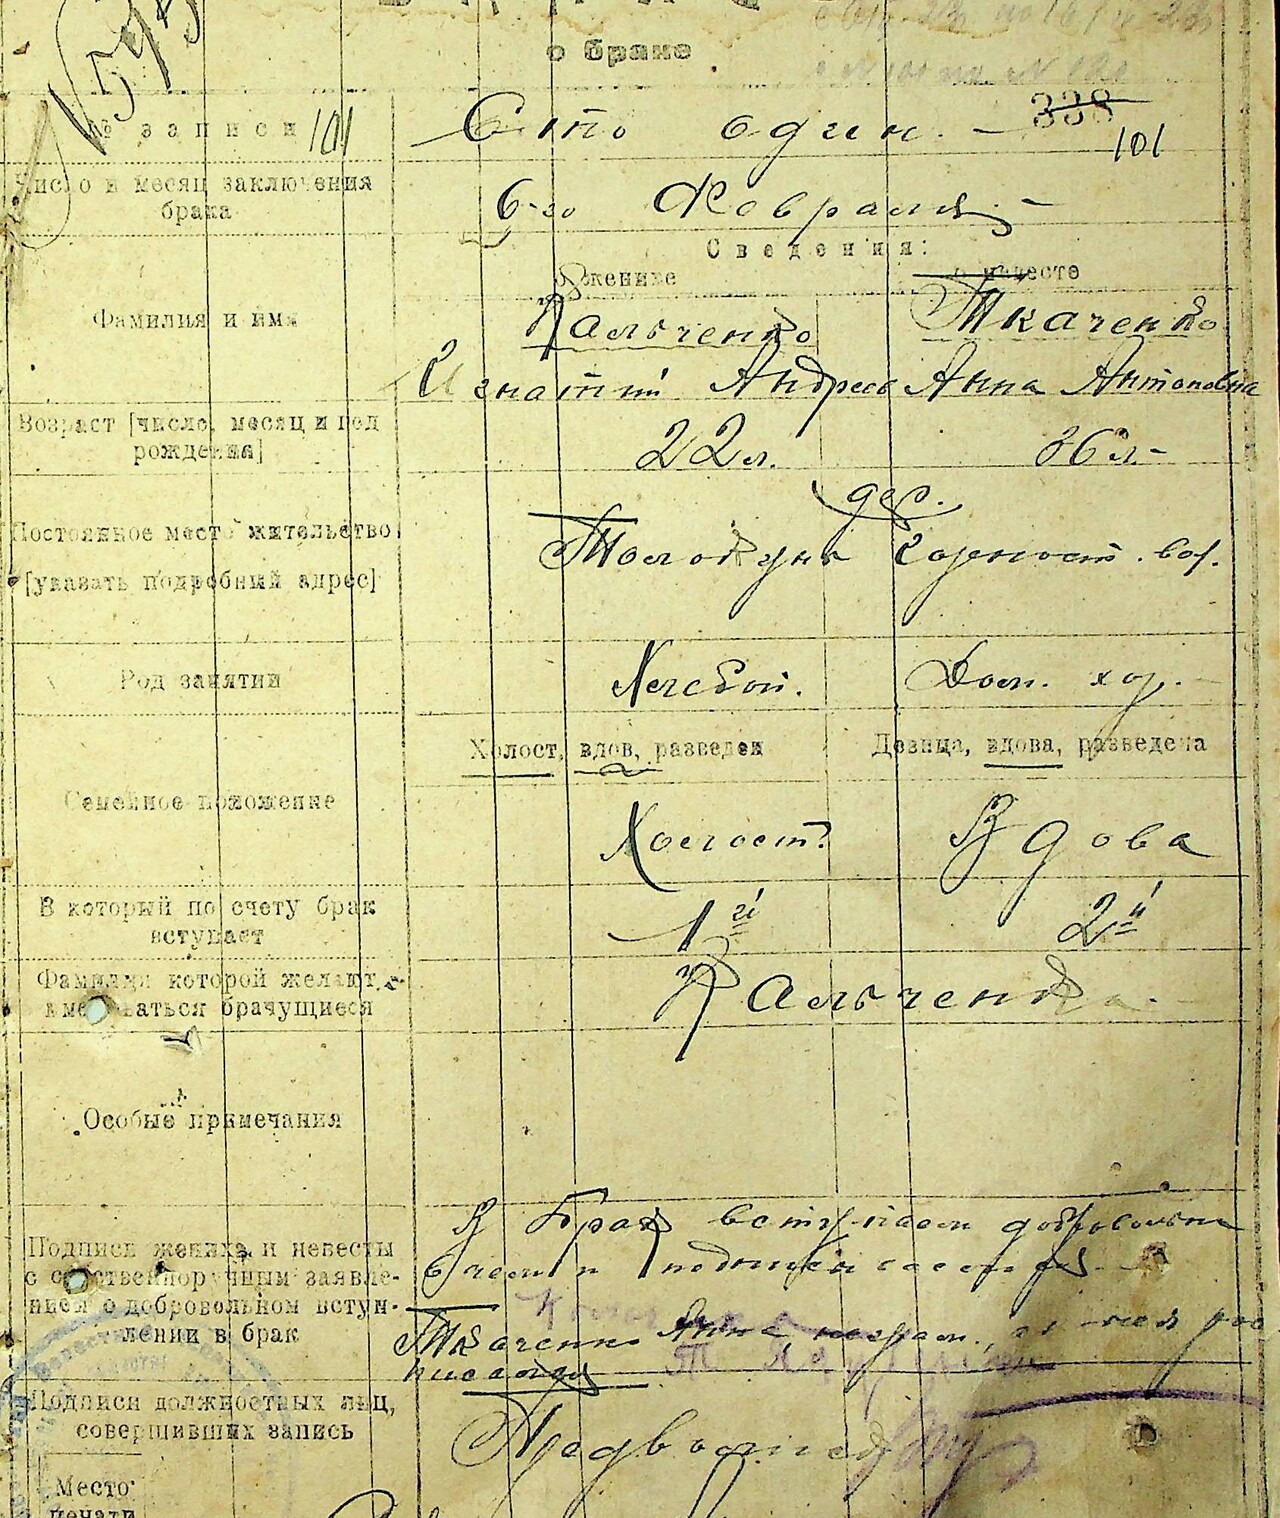 о браке
№ записи 101 Сто один. 338
101
Число и месяц заключения
брака
6-го Февраля
Сведения:
о женихе о невесте
Фамилия и имя
Кальченко Ткаченко
Игнатий Андреев Анна Антоновна
Возраст [число, месяц и год
рождения]
22 л. 36 л.
дер.
Постоянное место жительство
[указать подробный адрес]
Толокунь Горност. вол.
Род занятий
Хлебоп. Дом. хоз.
Холост, вдов, разведен Девица, вдова, разведена
Семейное положение
Холост. Вдова
В который по счету брак
вступает
1й 2й
Фамилия которой желают
именоваться брачущиеся
Кальченко.
Особые примечания
Подписи жениха и невесты
с собственноручным заявле-
нием о добровольном вступ-
лении в брак
В брак вступаем добровольно
в чем и подписаемся
Ткаченко Анна неграм., за нея рос
писался
Подписи должностных лиц,
совершивших запись
Предволисп
Место
печати